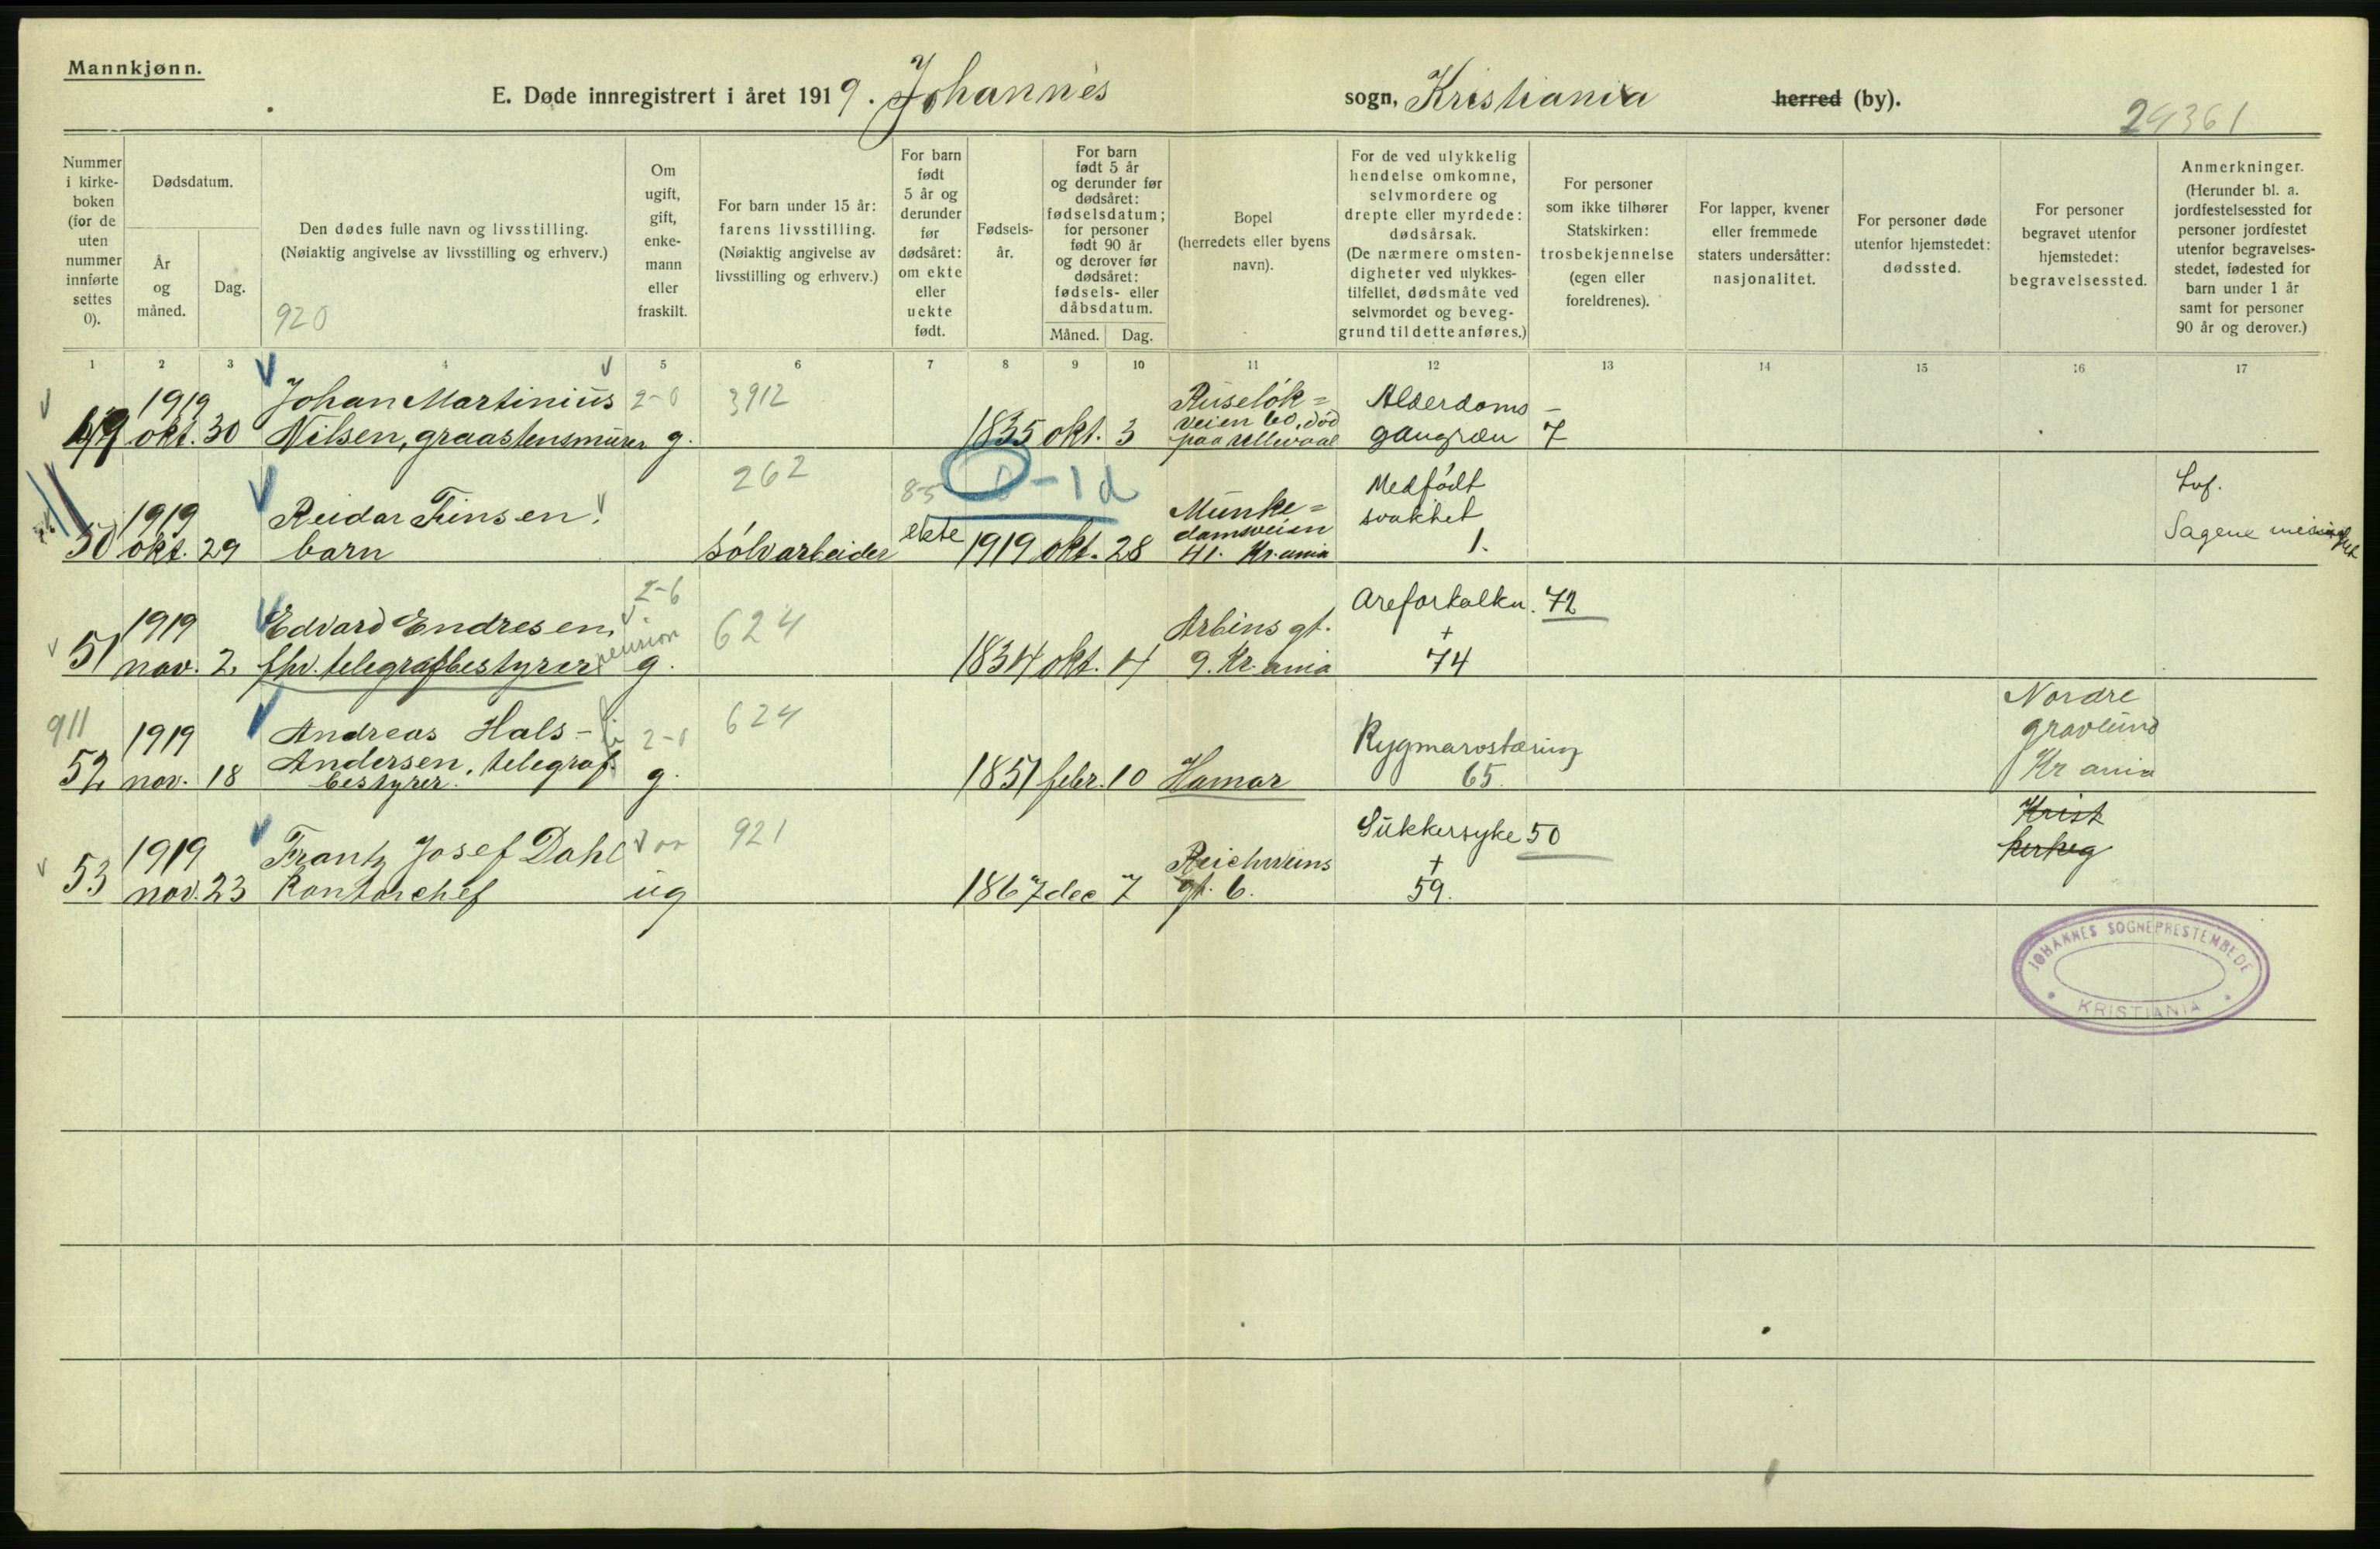 Mannkjønn.
E. Døde innregistrert i året 1919. Johannes sogn, Kristiania herred (by).
29361
Nummer i kirkeboken (for de uten nummer innførte settes 0).
Dødsdatum.
År og måned.
Dag.
Den dødes fulle navn og livsstilling.
(Nøiaktig angivelse av livsstilling og erhverv.)
920
Om ugift, gift, enkemann eller fraskilt.
For barn under 15 år: farens livsstilling. (Nøiaktig angivelse av livsstilling og erhverv.)
For barn født 5 år og derunder før dødsåret: om ekte eller uekte født.
Fødselsår.
For barn født 5 år og derunder før dødsåret: fødselsdatum; for personer født 90 år og derover før dødsåret: fødsels- eller dåbsdatum.
Måned.
Dag.
Bopel (herredets eller byens navn).
For de ved ulykkelig hendelse omkomne, selvmordere og drepte eller myrdede: dødsårsak. (De nærmere omstendigheter ved ulykkestilfellet, dødsmåte ved selvmordet og beveggrund til dette anføres.)
For personer som ikke tilhører Statskirken: trosbekjennelse (egen eller foreldrenes).
For lapper, kvener eller fremmede staters undersåtter: nasjonalitet.
For personer døde utenfor hjemstedet: dødssted.
For personer begravet utenfor hjemstedet: begravelsessted.
Anmerkninger. (Herunder bl. a. jordfestelsessted for personer jordfestet utenfor begravelsesstedet, fødested for barn under 1 år samt for personer 90 år og derover.)
1 2 3 4 5 6 7 8 9 10 11 12 13 14 15 16 17
1919 Johan Martinius 2-0 3912 Ruseløk= Alderdoms-
49 okt. 30 Nilsen, graastensmurer g. 1835 okt. 3 veien 60, død
paa Ullevaal gangræn 7
262 85 0-1d Medfødt
1919 Reidar Finsen. Munke= svakhet
50 okt. 29 barn sølvarbeider ekte 1919 okt. 28 damsveien
41. Kr.ania 1.
Sagene
2-6
1919 Edvard Endresen, 624 Arbins gt. Areforkalkn. 72
51 nov. 2. fhv. telegrafbestyrer pension g. 1834 okt. 14 9. Kr.ania + 74
911 1919 Andreas Hals- 2-0 624 Rygmarvstæring Nordre
52 nov. 18 Andersen, telegraf- g. 1851 febr. 10 Hamar 65. gravlund
bestyrer. Kr ania
1919 Frantz Josef Dahl 921 Reichweins Sukkersyke 50 Krist
53 nov. 23 Kontorchef ug 1867 dec 7 gt. 6. + 59. kirkeg
JOHANNES SOGNEPRESTEMBEDE
KRISTIANIA